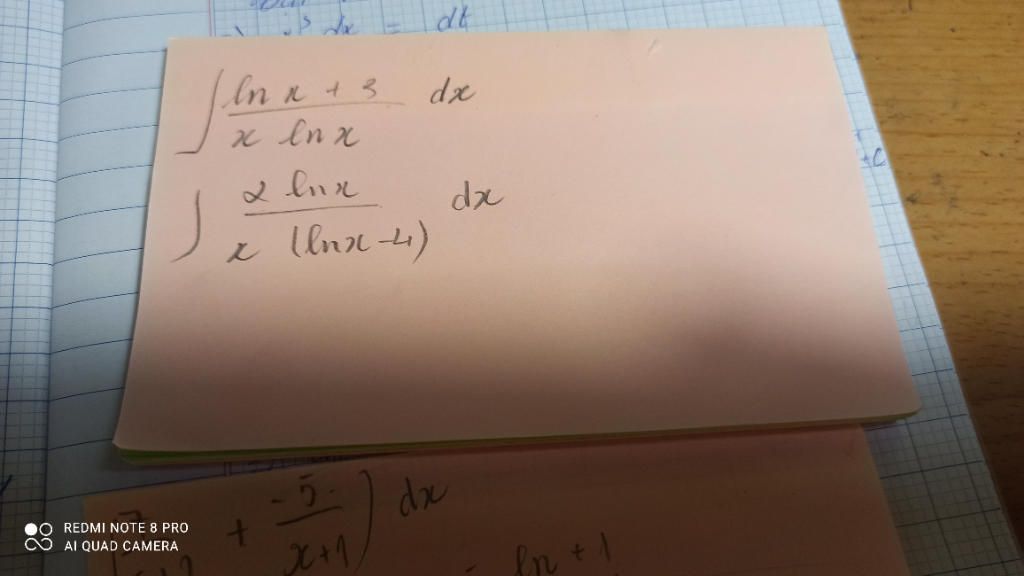 dx = dt
∫ (ln x + 3)/(x ln x) dx
∫ (2 ln x)/(x (ln x - 4)) dx
+C
+ (-5)/(x+1)) dx
= ln + 1
REDMI NOTE 8 PRO
AI QUAD CAMERA